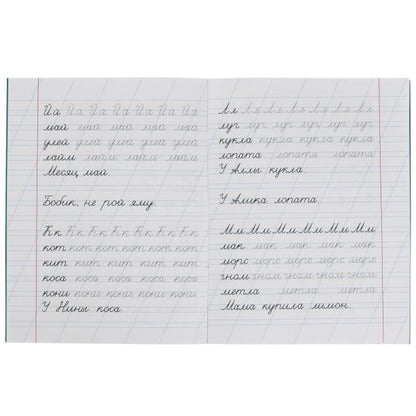 Йй Йй Йй Йй Йй Йй Йй
май май май май май май
улей улей улей улей улей
лайм лайм лайм лайм
Месяц май.
Бобик, не рой яму.
Кк Кк Кк Кк Кк Кк Кк
кот кот кот кот кот кот
кит кит кит кит кит
коса коса коса коса коса
кони кони кони кони кони
У Нины коса.
Лл Лл Лл Лл Лл Лл Лл
луг луг луг луг луг луг
кукла кукла кукла кукла
лопата лопата лопата
У Аллы кукла.
У Алика лопата.
Мм Мм Мм Мм Мм Мм
мак мак мак мак мак
морс морс морс морс
гном гном гном гном гном
метла метла метла
Мама купила лимон.